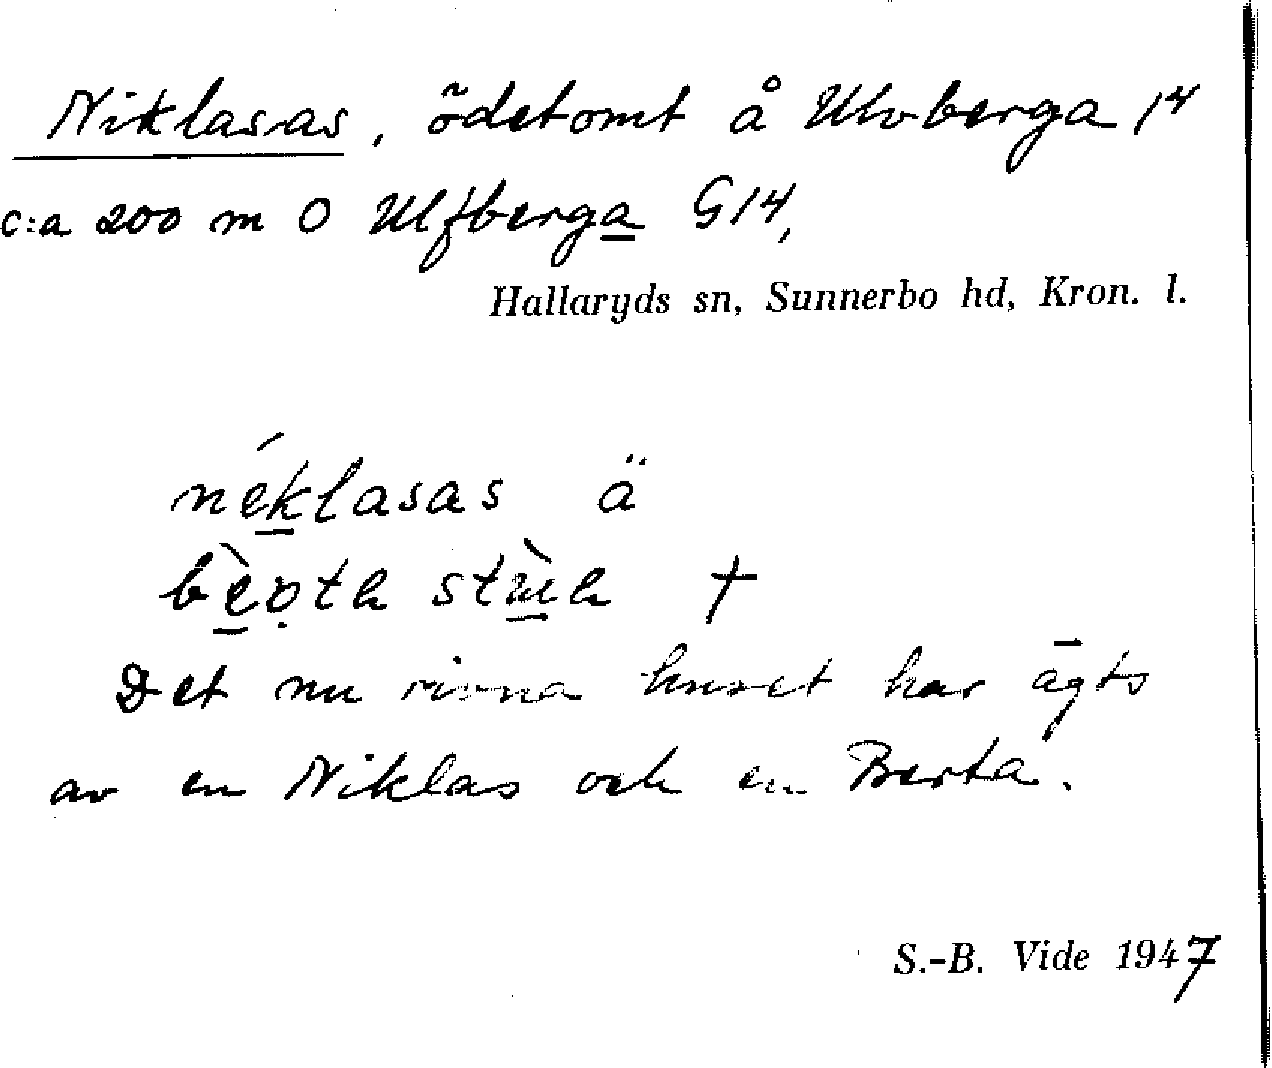 Niklasas, ödetomt å Ulvberga 14
c:a 200 m O Ulfberga G14,
Hallaryds sn, Sunnerbo hd, Kron. l.
néklasas ä
†
Det nu rivna huset har ägts
av en Niklas och en Berta.
S.-B. Vide 1947